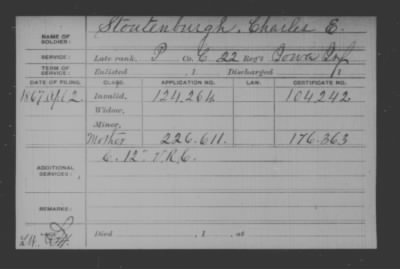 NAME OF SOLDIER: Stoutenburgh, Charles E.
SERVICE: Late rank, P Co. C, 22 Reg't Iowa Inf
TERM OF SERVICE: Enlisted , 1 Discharged , 1
DATE OF FILING. CLASS. APPLICATION NO. LAW. CERTIFICATE NO.
1867 Invalid, 124.264 104242
Widow,
Minor,
Mother 226.611. 176.363
ADDITIONAL SERVICES: C. 12" V.R.C.
REMARKS:
Died , 1 , at